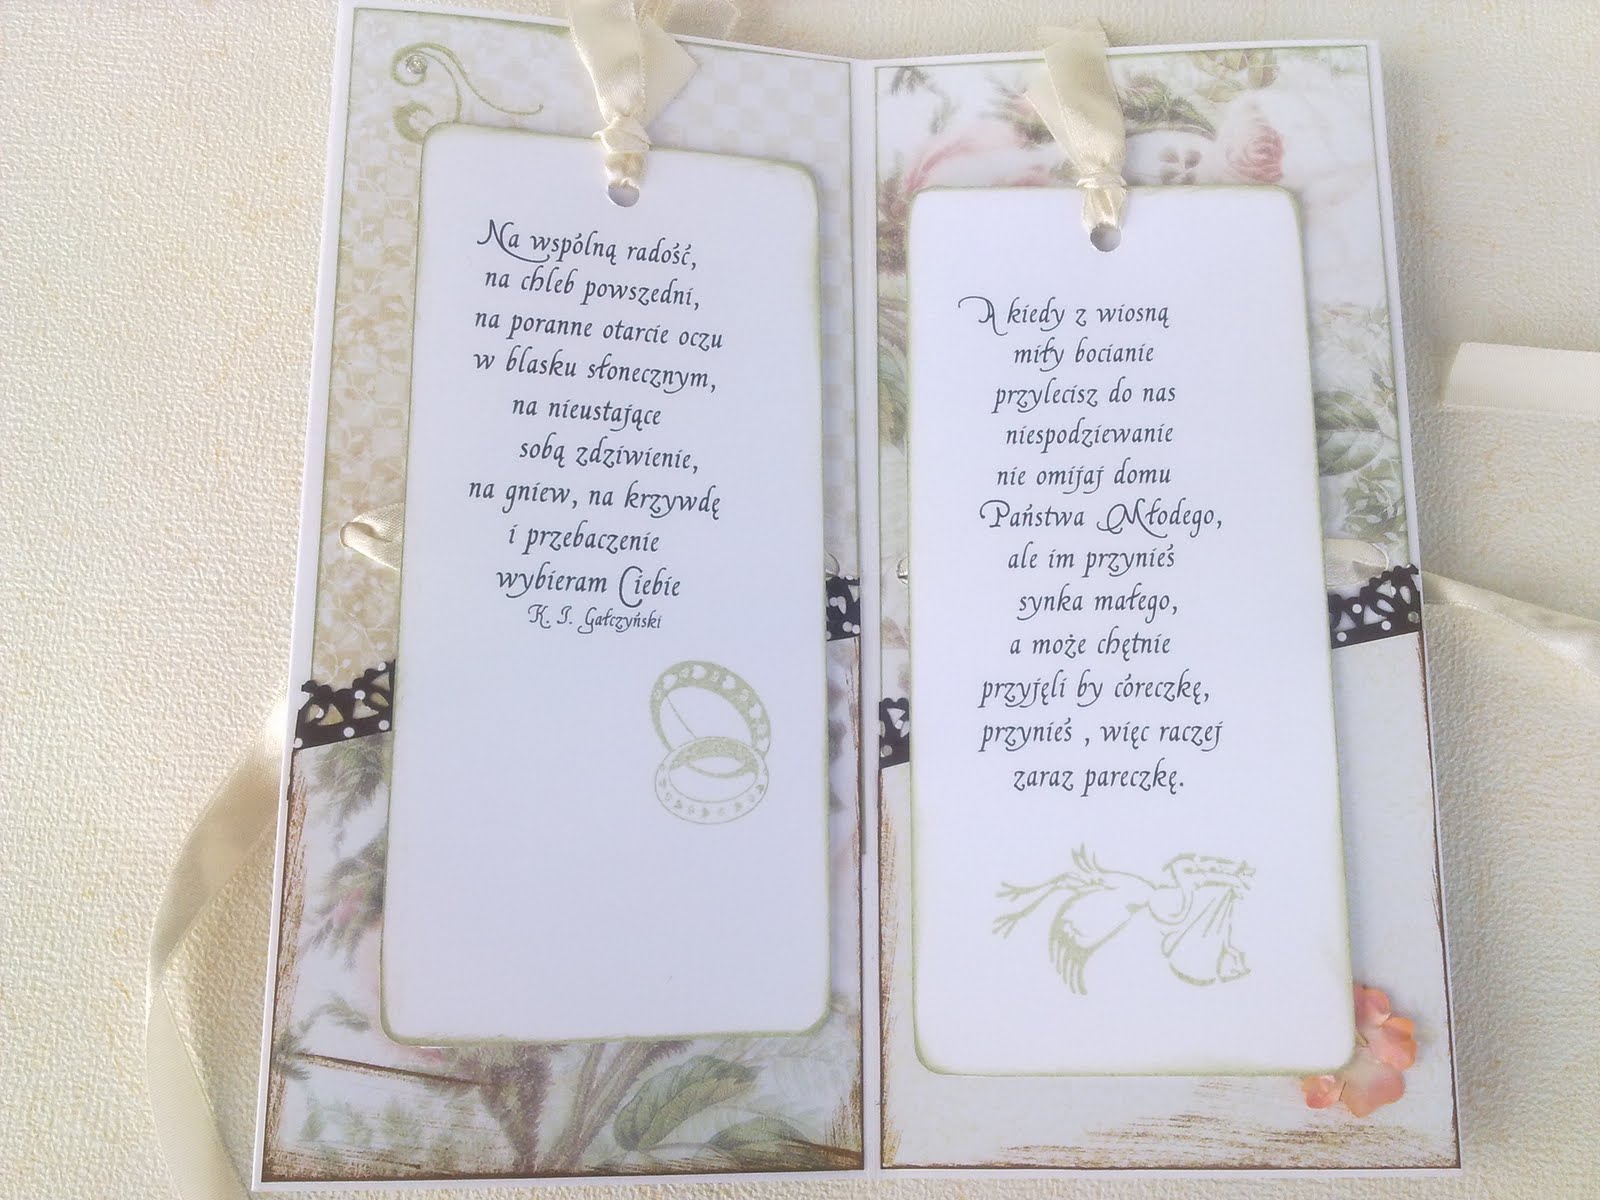 Na wspólną radość,
na chleb powszedni,
na poranne otarcie oczu
w blasku słonecznym,
na nieustające
sobą zdziwienie,
na gniew, na krzywdę
i przebaczenie
wybieram Ciebie
K. I. Gałczyński
A kiedy z wiosną
miły bocianie
przylecisz do nas
niespodziewanie
nie omijaj domu
Państwa Młodego,
ale im przynieś
synka małego,
a może chętnie
przyjęli by córeczkę,
przynieś , więc raczej
zaraz pareczkę.